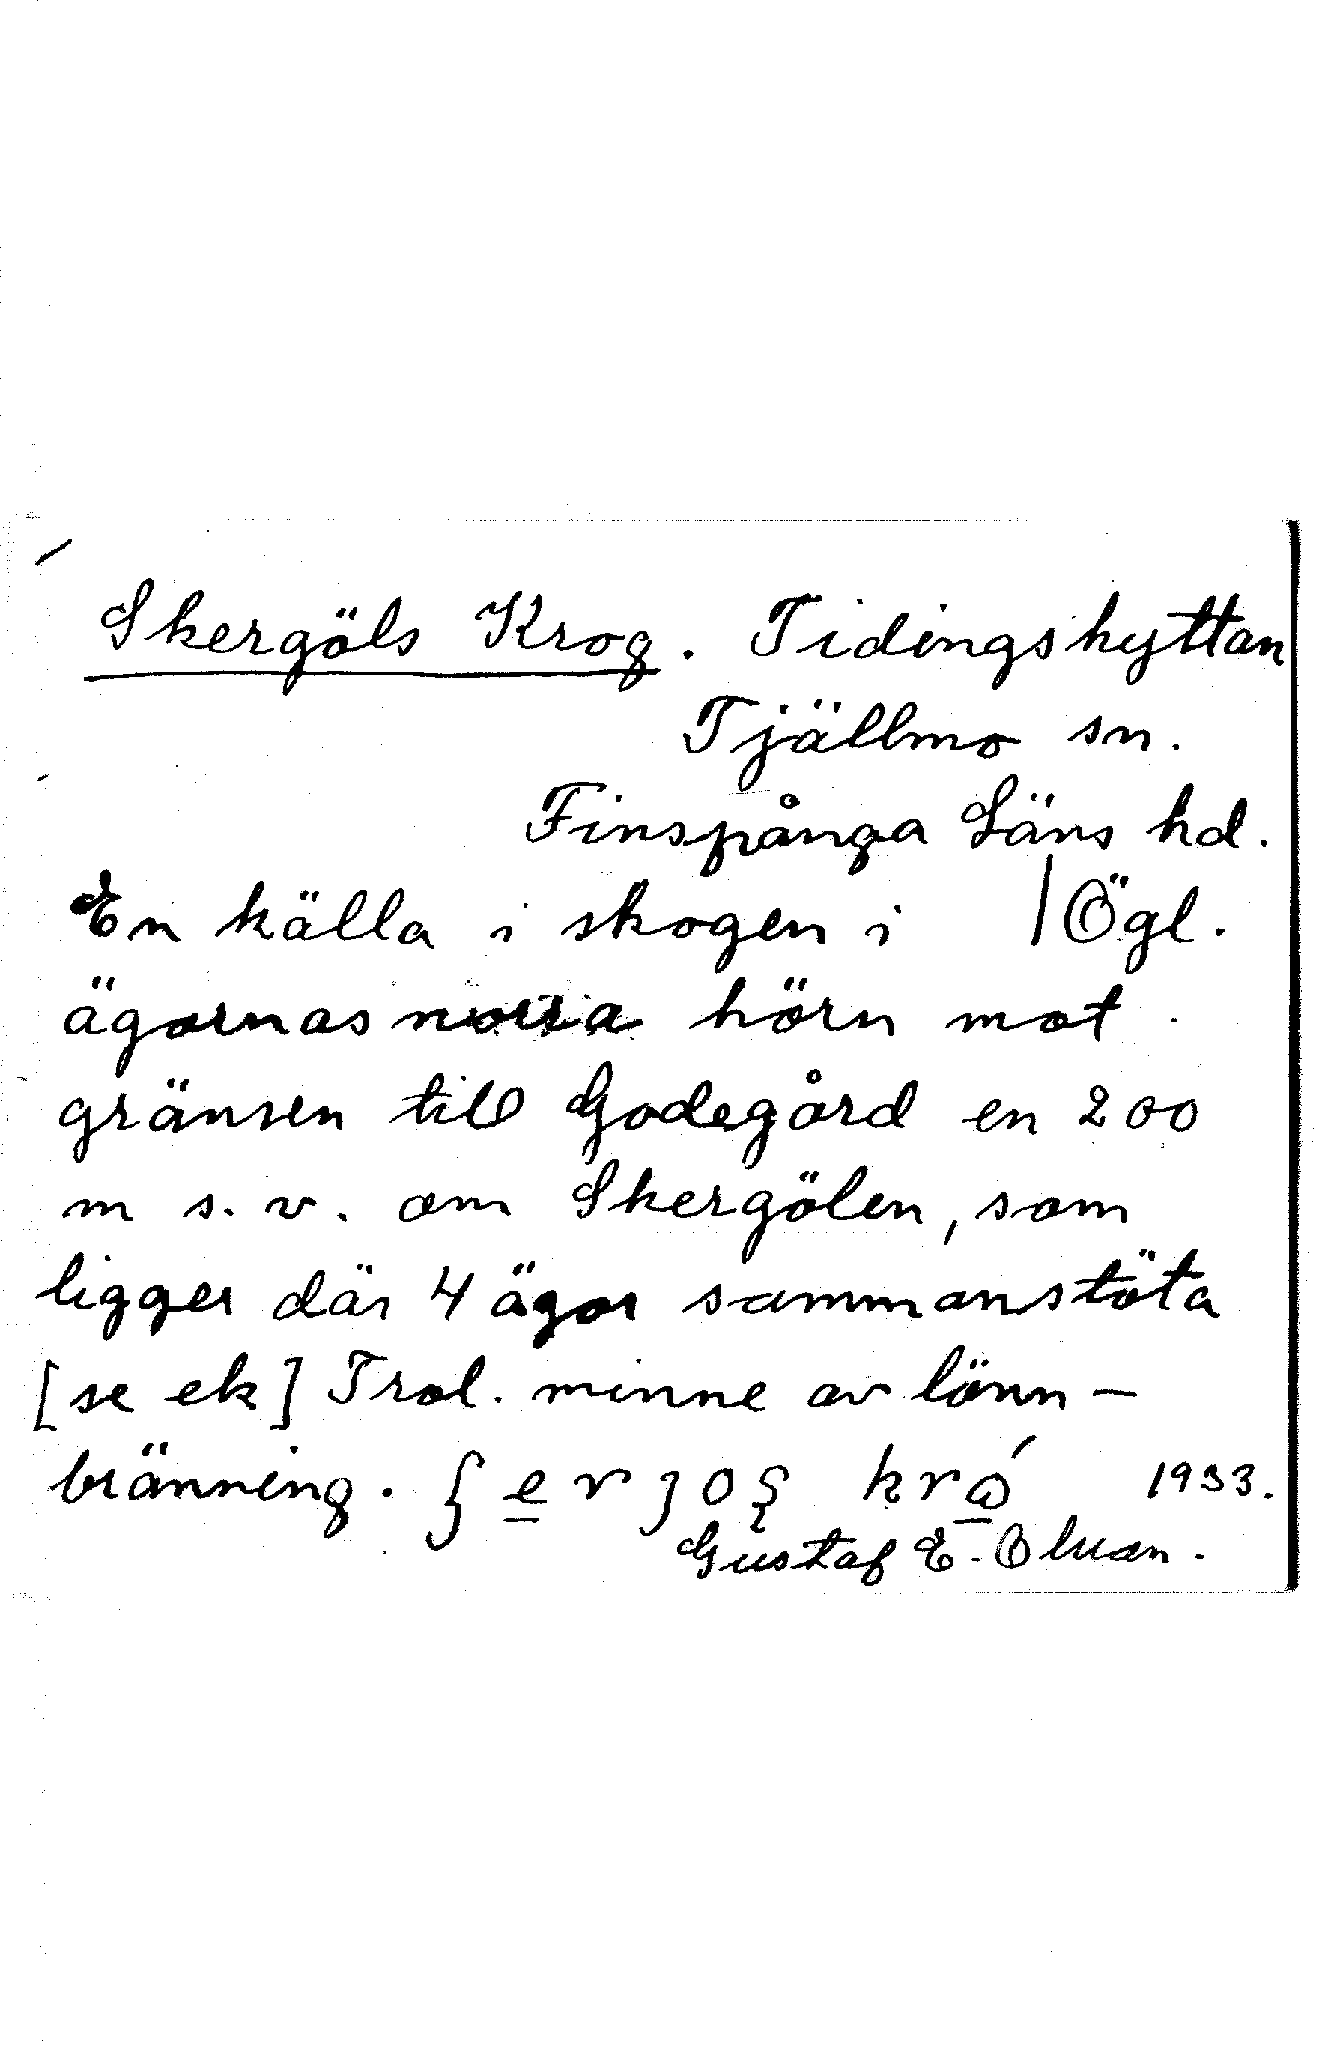 Skergöls Krog. Tidingshyttan
Tjällmo sn.
Finspånga Läns hd.
En källa i skogen i | Ögl.
ägornas norra hörn mot
gränsen till Godegård en 200
m s.v. om Skergölen, som
ligger där 4 ägor sammanstöta
[se ek] Trol. minne av lönn-
bränning. 1933.
Gustaf E.